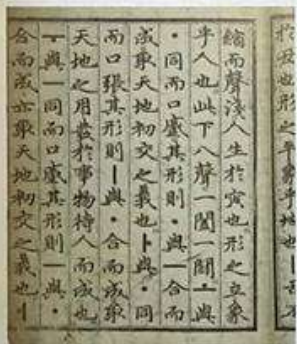 於丑也形之平象乎地也ㅣ舌不
縮而聲淺人生於寅也形之立象
乎人也此下八聲一闔一闢ㅗ與
ㆍ同而口蹙其形則ㆍ與ㅡ合而
成取天地初交之義也ㅏ與ㆍ同
而口張其形則ㅣ與ㆍ合而成取
天地之用發於事物待人而成也
ㅜ與ㅡ同而口蹙其形則ㅡ與ㆍ
合而成亦取天地初交之義也ㅓ